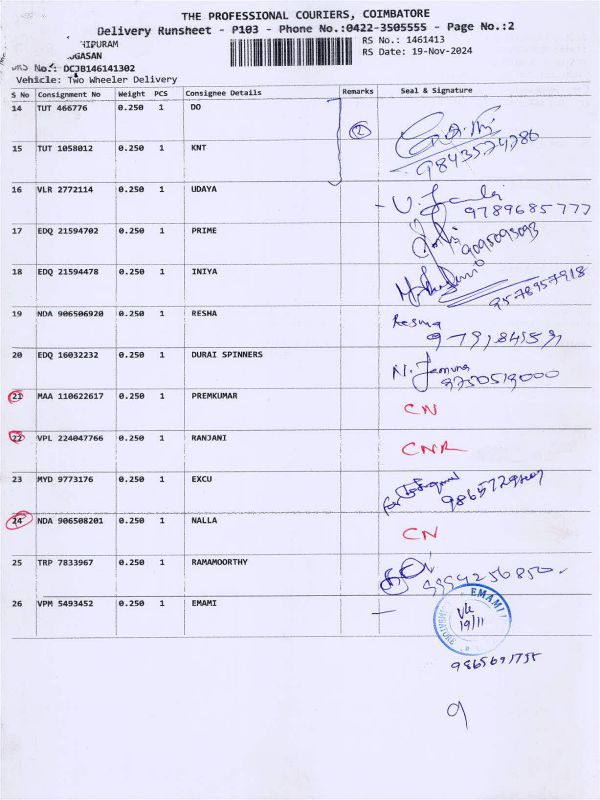 THE PROFESSIONAL COURIERS, COIMBATORE
Delivery Runsheet - P103 - Phone No.:0422-3505555 - Page No.:2
HIPURAM
RS No.: 1461413
GASAN
RS Date: 19-Nov-2024
No.: DCJB146141302
Vehicle: Two Wheeler Delivery
S No Consignment No Weight PCS Consignee Details Remarks Seal & Signature
14 TUT 466776 0.250 1 DO 2 9843574786
15 TUT 1058012 0.250 1 KNT
16 VLR 2772114 0.250 1 UDAYA 9789685777
17 EDQ 21594702 0.250 1 PRIME 9095093093
18 EDQ 21594478 0.250 1 INIYA 9578957918
19 NDA 906506920 0.250 1 RESHA Resma
20 EDQ 16032232 0.250 1 DURAI SPINNERS N. Jamuna 9750519000
21 MAA 110622617 0.250 1 PREMKUMAR CN
22 VPL 224047766 0.250 1 RANJANI CNR
23 MYD 9773176 0.250 1 EXCU for
24 NDA 906508201 0.250 1 NALLA CN
25 TRP 7833967 0.250 1 RAMAMOORTHY 9994256850
26 VPM 5493452 0.250 1 EMAMI
EMAMI
19/11
9